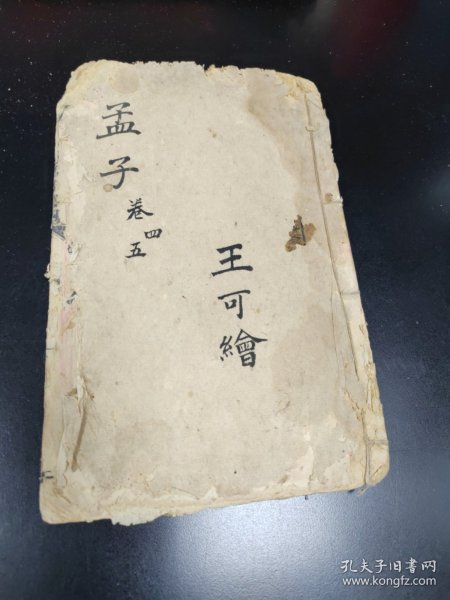 孟子
卷四五
王可繪
孔夫子旧书网
www.kongfz.com